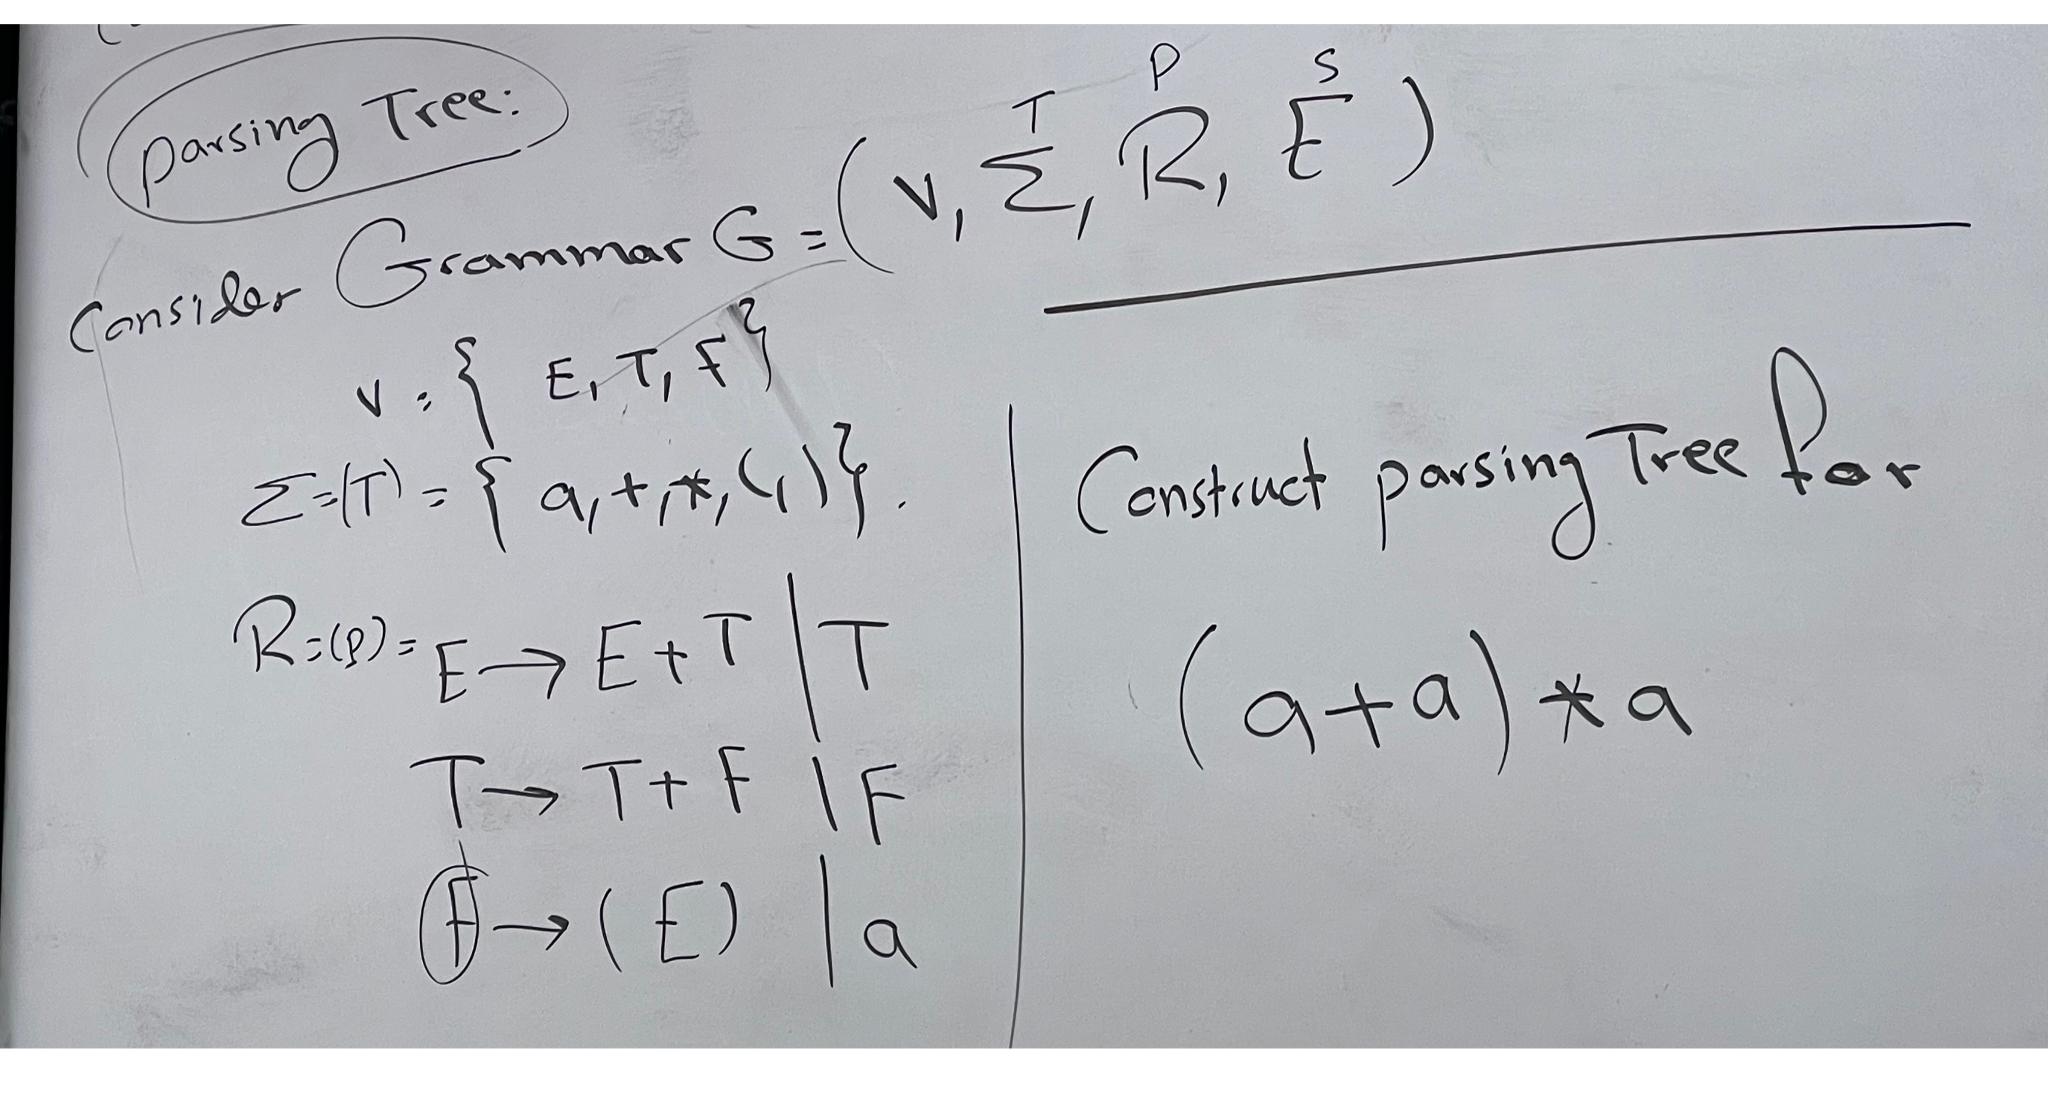 Parsing Tree:
T P S
Consider Grammar G = (V, Σ, R, E)
V = { E, T, F }
Σ=(T) = { a, +, *, (, ) }.
R=(P) = E → E + T | T
T → T + F | F
F → (E) | a
Construct parsing Tree for
(a+a) * a